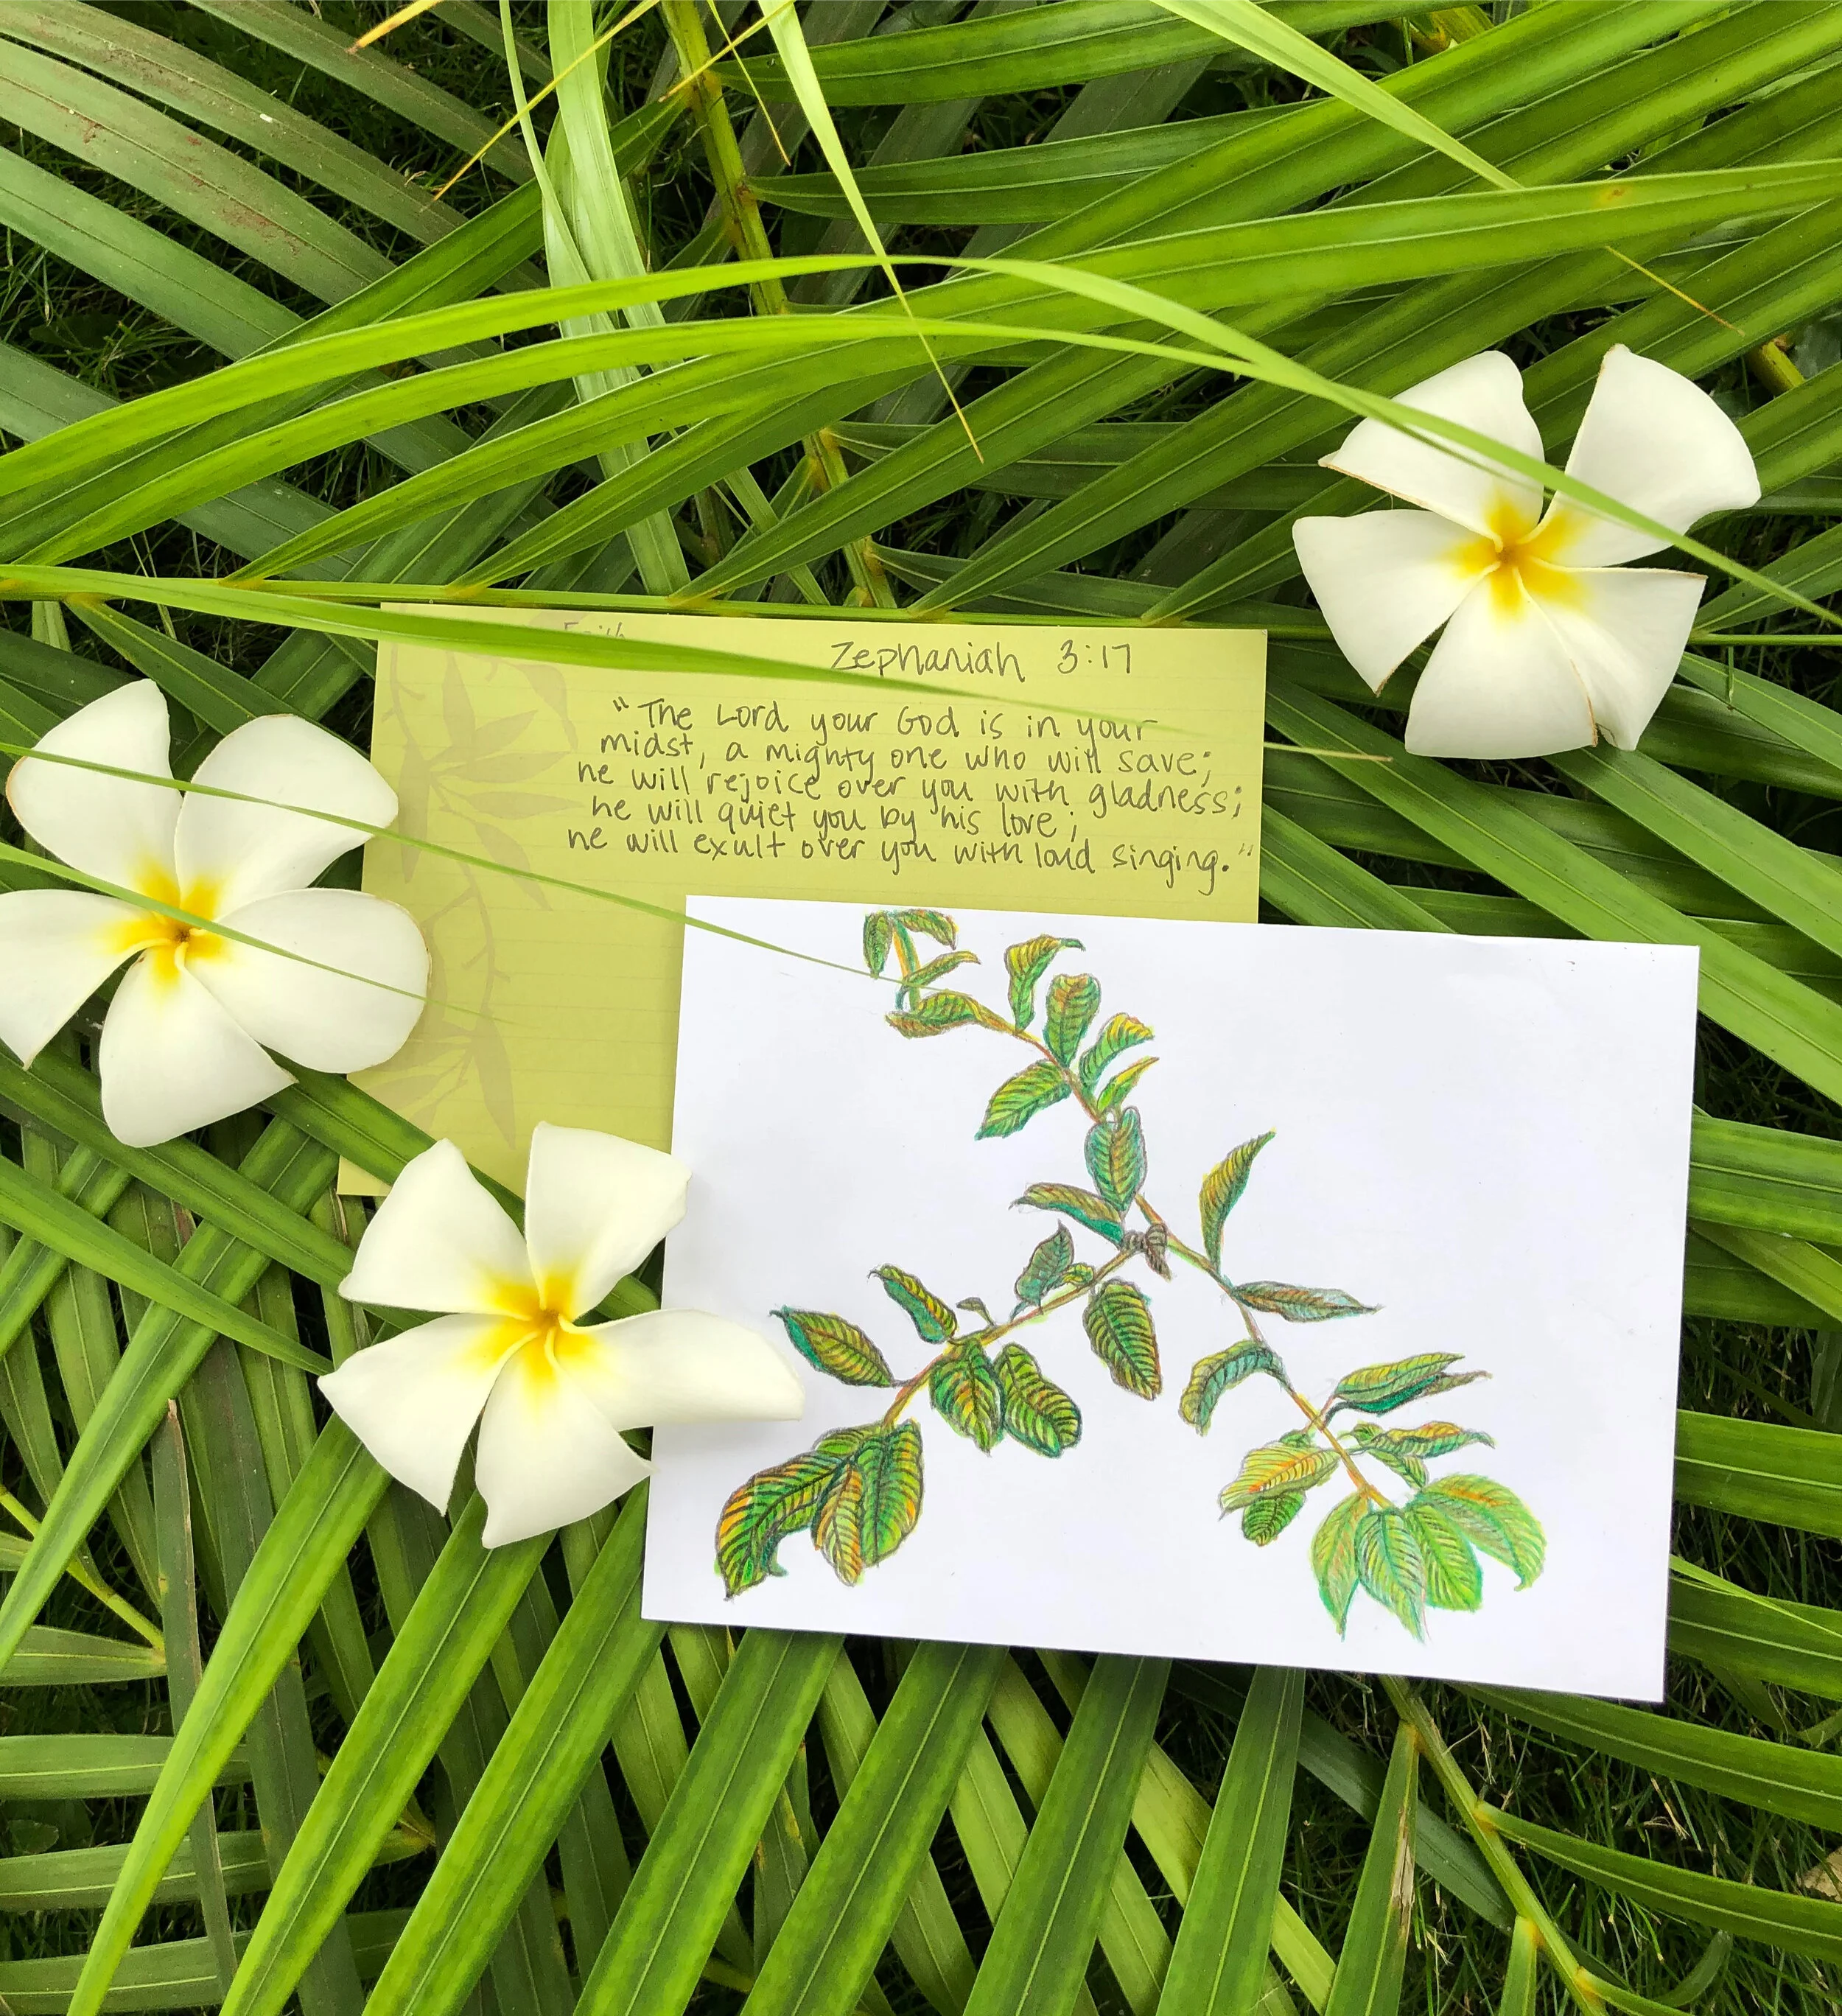 Faith
Zephaniah 3:17
"The Lord your God is in your
midst, a mighty one who will save;
he will rejoice over you with gladness;
he will quiet you by his love;
he will exult over you with loud singing."